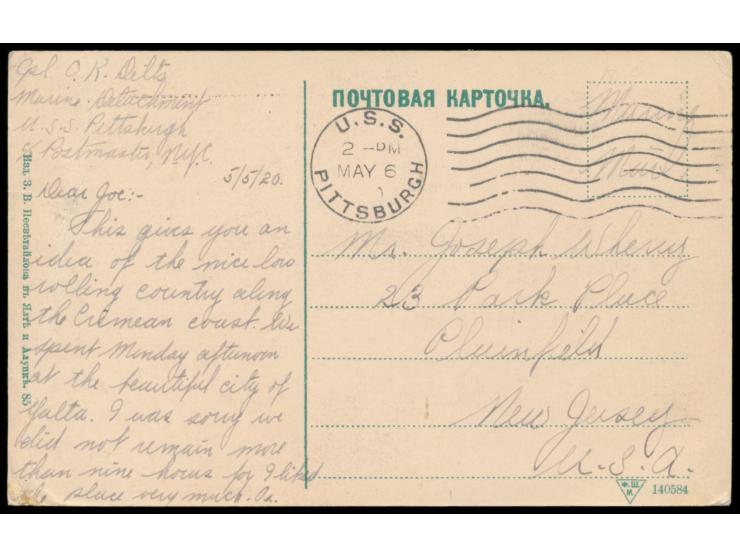 Cpl. O. K. Diltz
Marine Detachment
U.S.S. Pittsburgh
c/o Postmaster, N.Y.C.
5/5/20.
Dear Joe:-
This gives you an
idea of the nice low
rolling country along
the Crimean coast. We
spent Monday afternoon
at the beautiful city of
Yalta. I was sorry we
did not remain more
than nine hours for I liked
the place very much.
Изд. З. В. въ Ялтѣ и Алупкѣ. 85
ПОЧТОВАЯ КАРТОЧКА.
U.S.S.
2 -PM
MAY 6
PITTSBURGH
Mail
Mr. Joseph Wherry
23 Park Place
Plainfield
New Jersey
U.S.A.
Ф.Ш.
М.
140584